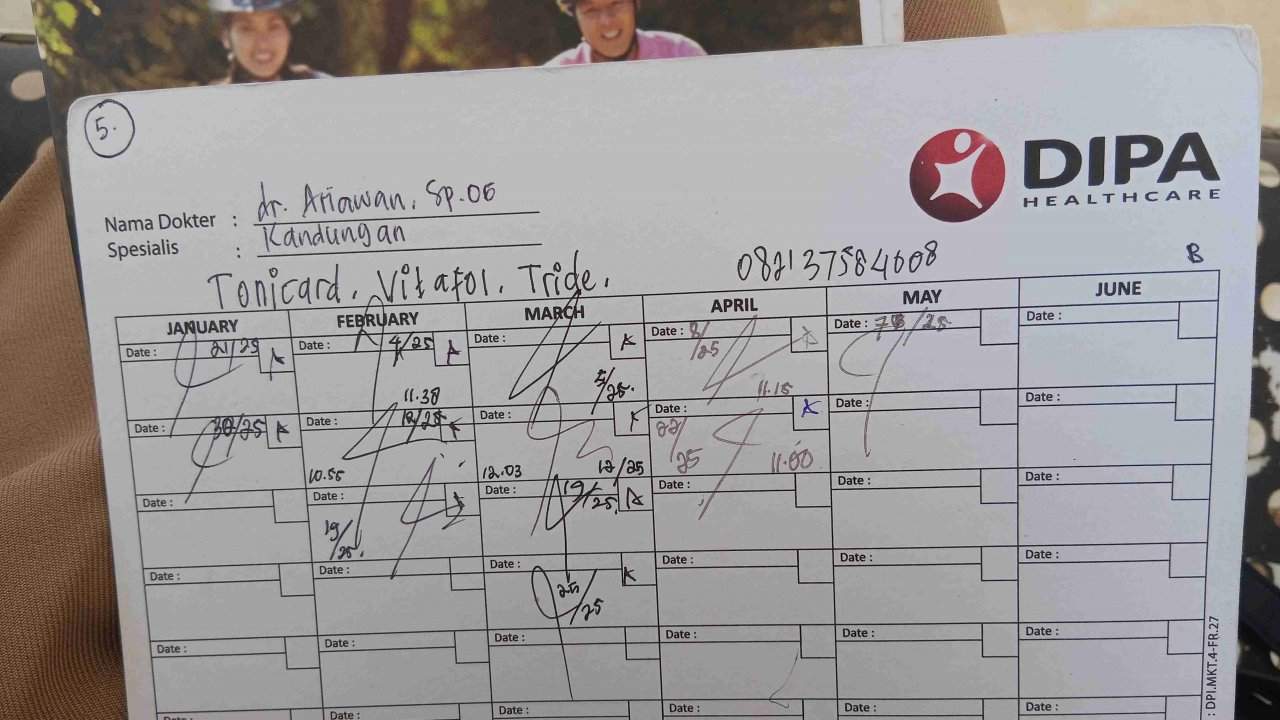 5.
DIPA
HEALTHCARE
Nama Dokter : dr. Ariawan, Sp.OG
Spesialis : Kandungan
Tonicard. Vitafol. Tride. 082137584608 B
JANUARY FEBRUARY MARCH APRIL MAY JUNE
Date : 21/25 A Date : 4/25 A Date : A Date : 8/25 A Date : /25 Date :
11.38 5/25. 11.15
Date : 30/25 A Date : 12/25 A Date : A Date : 22/25 A Date : Date :
10.55 12.03 12/25 11.00
Date : Date : 19/25. A Date : 19/25. A Date : Date : Date :
Date : Date : Date : 25/25 A Date : Date : Date :
Date : Date : Date : Date : Date : Date :
Date : Date : Date : Date : Date : Date :
: DPI.MKT.4-FR.27